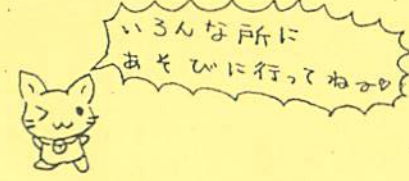 いろんな所に
あそびに行ってね♡